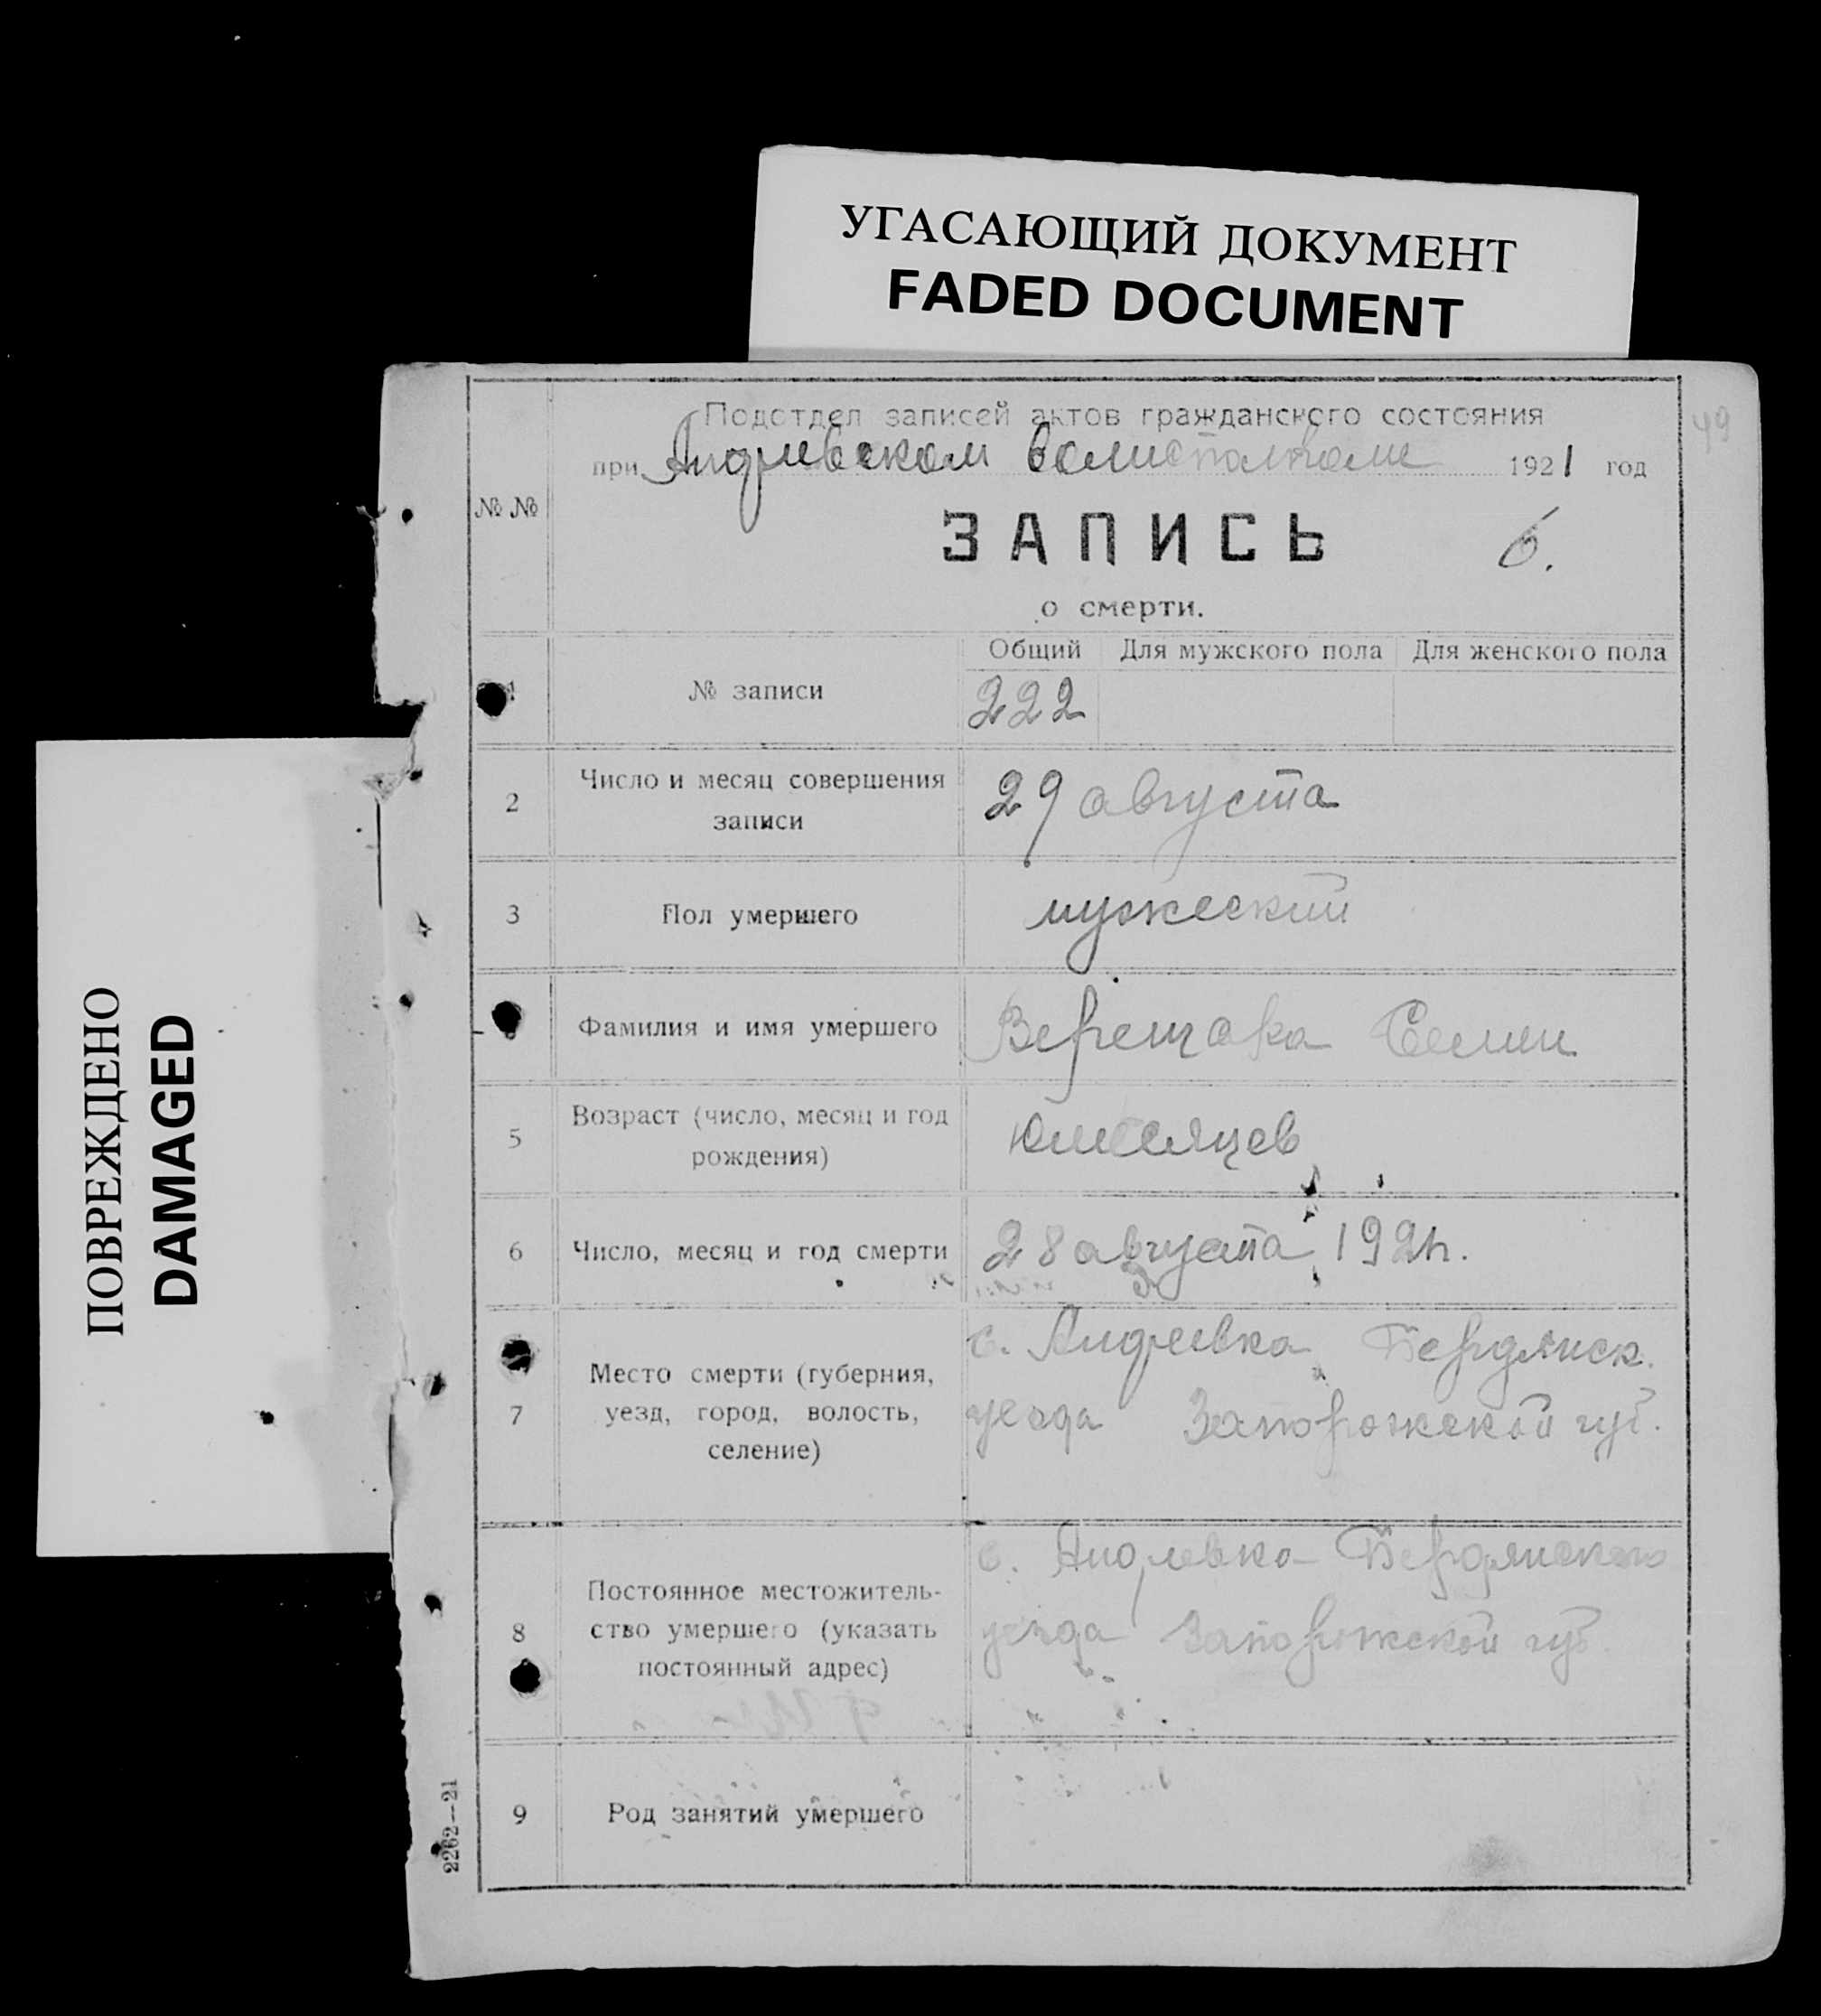 УГАСАЮЩИЙ ДОКУМЕНТ
FADED DOCUMENT
ПОВРЕЖДЕНО
DAMAGED
49
Подотдел записей актов гражданского состояния
при Андреевском волисполкоме 1921 год
№ №
ЗАПИСЬ 6.
о смерти.
Общий Для мужского пола Для женского пола
1 № записи 222
2 Число и месяц совершения
записи
29 августа
3 Пол умершего мужеский
Фамилия и имя умершего Верещака Семен
5 Возраст (число, месяц и год
рождения)
10 месяцев
6 Число, месяц и год смерти 28 августа 1921 г.
7 Место смерти (губерния,
уезд, город, волость,
селение)
с. Андреевка Бердянск.
уезда Запорожской губ.
8 Постоянное местожитель-
ство умершего (указать
постоянный адрес)
с. Андреевка Бердянского
уезда Запорожской губ.
9 Род занятий умершего
2262—21